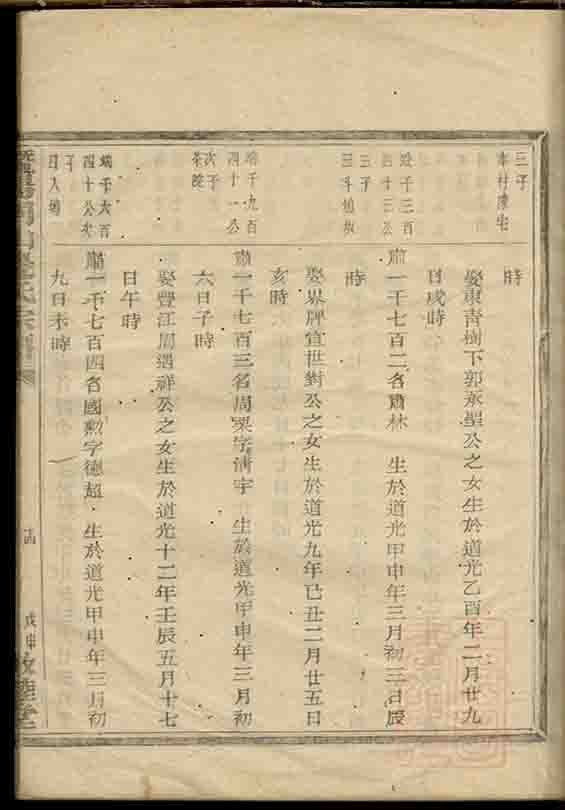 三子
時
娶東青樹下郭永聖公之女生於道光乙酉年二月廿九
日戌時
四十三公
三子
肅一千七百二名肅林 生於道光甲申年三月初三日辰
時
娶界牌宣世對公之女生於道光九年己丑二月廿五日
亥時
端千九百
四十一公
次子
肅一千七百三名周栗字清宇 生於道光甲申年三月初
六日子時
娶豐江周遇祥公之女生於道光十二年壬辰五月十七
日午時
端千六百
四十公
子
肅一千七百四名國勲字德超 生於道光甲申年三月初
九日未時
氏宗譜